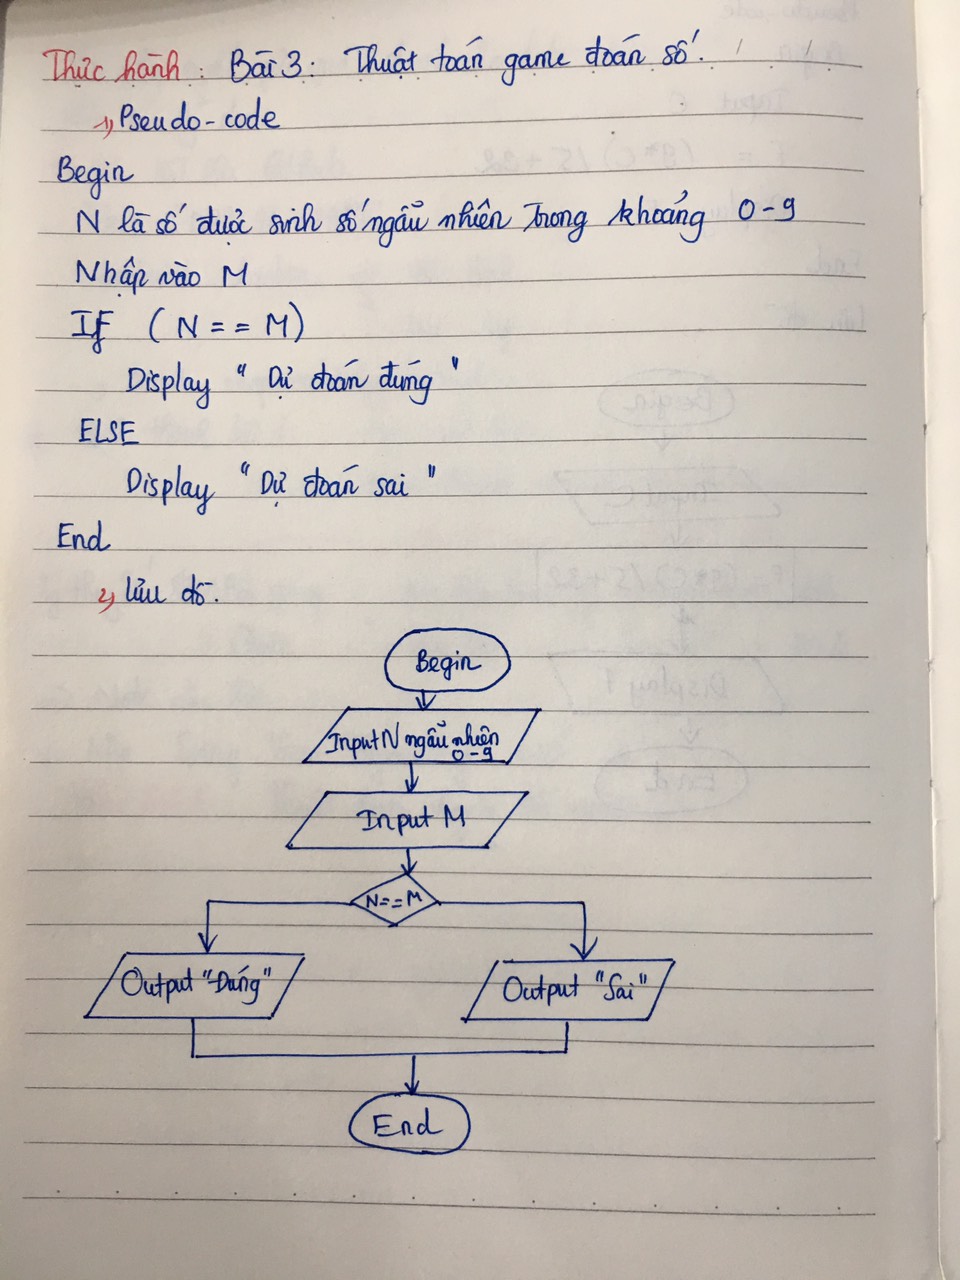 Thực hành: Bài 3: Thuật toán game đoán số.
1, Pseudo-code
Begin
N là số được sinh số ngẫu nhiên trong khoảng 0-9
Nhập vào M
If (N == M)
Display " Dự đoán đúng "
ELSE
Display " Dự đoán sai "
End
2, Lưu đồ.
Begin
Input N ngẫu nhiên
0-9
Input M
N==M
Output "Đúng"
Output "Sai"
End